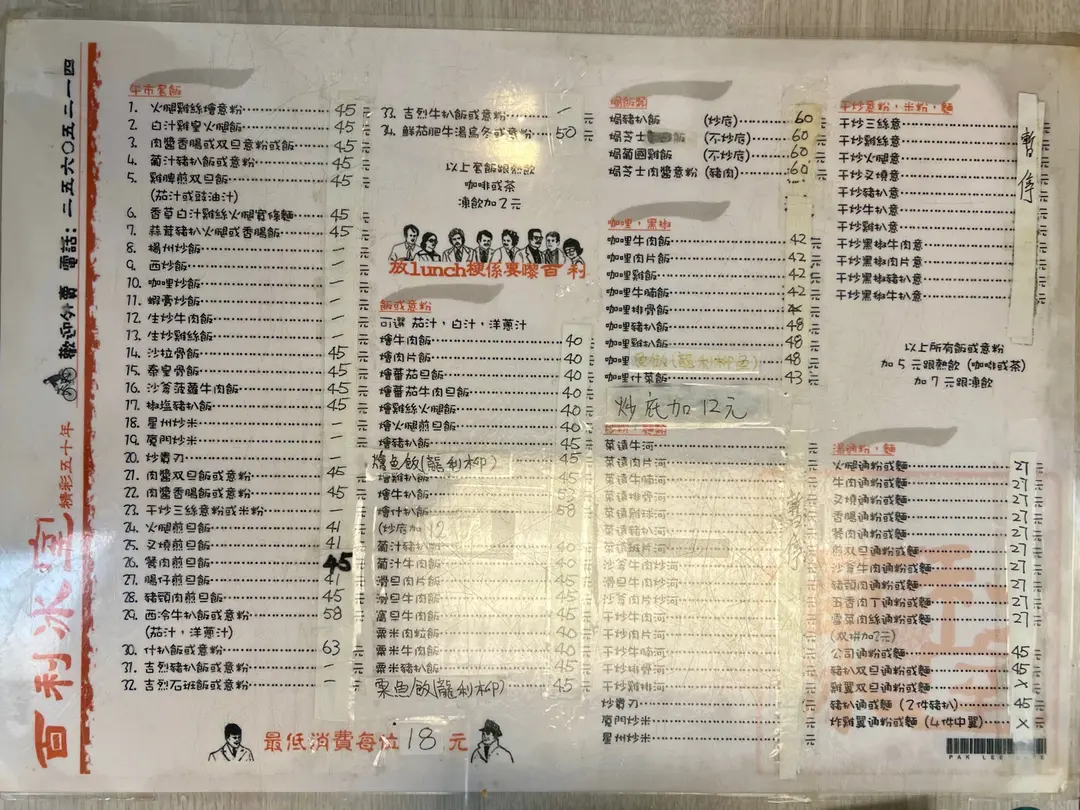 百利冰室 精彩五十年
歡迎外賣 電話：二五六〇五二一四
午市套飯
1. 火腿雞絲燴意粉 45 元
2. 白汁雞皇火腿飯 45 元
3. 肉醬香腸或双旦意粉或飯 45 元
4. 葡汁豬扒飯或意粉 45 元
5. 雞脾煎双旦飯 45 元
(茄汁或豉油汁)
6. 香草白汁雞絲火腿寬條麵 45 元
7. 蒜茸豬扒火腿或香腸飯 45 元
8. 揚州炒飯 — 元
9. 西炒飯 — 元
10. 咖喱炒飯 — 元
11. 蝦膏炒飯 — 元
12. 生炒牛肉飯 — 元
13. 生炒雞絲飯 — 元
14. 沙拉骨飯 45 元
15. 秦皇骨飯 45 元
16. 沙爹菠蘿牛肉飯 45 元
17. 椒塩豬扒飯 45 元
18. 星州炒米 — 元
19. 廈門炒米 — 元
20. 炒貴刁 — 元
21. 肉醬双旦飯或意粉 45 元
22. 肉醬香腸飯或意粉 45 元
23. 干炒三絲意粉或米粉 — 元
24. 火腿煎旦飯 41 元
25. 叉燒煎旦飯 41 元
26. 餐肉煎旦飯 45 元
27. 腸仔煎旦飯 41 元
28. 豬頸肉煎旦飯 45 元
29. 西冷牛扒飯或意粉 58 元
(茄汁，洋蔥汁)
30. 什扒飯或意粉 63 元
31. 吉烈豬扒飯或意粉 — 元
32. 吉烈石班飯或意粉 — 元
33. 吉烈牛扒飯或意粉 — 元
34. 鮮茄肥牛湯烏冬或意粉 50 元
以上套飯跟熱飲
咖啡或茶
凍飲加2元
放lunch梗係要嚟百利
飯或意粉
可選 茄汁，白汁，洋蔥汁
燴牛肉飯 40 元
燴肉片飯 40 元
燴蕃茄旦飯 40 元
燴蕃茄牛肉旦飯 40 元
燴雞絲火腿飯 40 元
燴火腿煎旦飯 40 元
燴豬扒飯 45 元
燴魚飯(龍利柳) 45 元
燴雞扒飯 45 元
燴牛扒飯 53 元
燴什扒飯 58 元
(炒底加 12
葡汁豬扒飯
葡汁牛肉飯 40 元
滑旦肉片飯 40 元
滑旦牛肉飯 40 元
窩旦牛肉飯 40 元
粟米肉粒飯 40 元
粟米牛肉飯 40 元
粟米豬扒飯 45 元
粟魚飯(龍利柳) 45 元
焗飯類
焗豬扒飯 (炒底) 60 元
焗芝士 飯 (不炒底) 60 元
焗葡國雞飯 (不炒底) 60 元
焗芝士肉醬意粉 (豬肉) 60 元
咖哩，黑椒
咖哩牛肉飯 42 元
咖哩肉片飯 42 元
咖哩雞飯 42 元
咖哩牛腩飯 42 元
咖哩排骨飯 元
咖哩豬扒飯 48 元
咖哩雞扒飯 48 元
咖哩魚飯(龍利柳魚) 48 元
咖哩什菜飯 43 元
炒底加12元
炒粉，麵類
暫停
菜遠牛河 元
菜遠肉片河 元
菜遠牛腩河 元
菜遠排骨河 元
菜遠雞球河 元
菜遠豬扒河 元
菜遠班片河 元
沙爹牛肉炒河 元
滑旦牛肉炒河 元
沙爹肉片炒河 元
干炒牛肉河 元
干炒肉片河 元
干炒牛腩河 元
干炒排骨河 元
干炒雞排河 元
炒貴刁 元
廈門炒米 元
星州炒米 元
干炒意粉，米粉，麵
暫停
干炒三絲意 元
干炒雞絲意 元
干炒火腿意 元
干炒叉燒意 元
干炒豬扒意 元
干炒牛扒意 元
干炒雞扒意 元
干炒黑椒牛肉意 元
干炒黑椒肉片意 元
干炒黑椒豬扒意 元
干炒黑椒牛扒意 元
以上所有飯或意粉
加 5 元跟熱飲 (咖啡或茶)
加 7 元跟凍飲
湯通粉，麵
火腿通粉或麵 27 元
牛肉通粉或麵 27 元
叉燒通粉或麵 27 元
香腸通粉或麵 27 元
餐肉通粉或麵 27 元
煎双旦通粉或麵 27 元
沙爹牛肉通粉或麵 27 元
豬頸肉通粉或麵 27 元
五香肉丁通粉或麵 27 元
雪菜肉絲通粉或麵 27 元
(双拼加2元)
公司通粉或麵 45 元
豬扒双旦通粉或麵 45 元
雞翼双旦通粉或麵 X 元
豬扒通或麵 (2件豬扒) 45 元
炸雞翼通粉或麵 (4件中翼) X 元
最低消費每位18元
PAK LEE CAFE